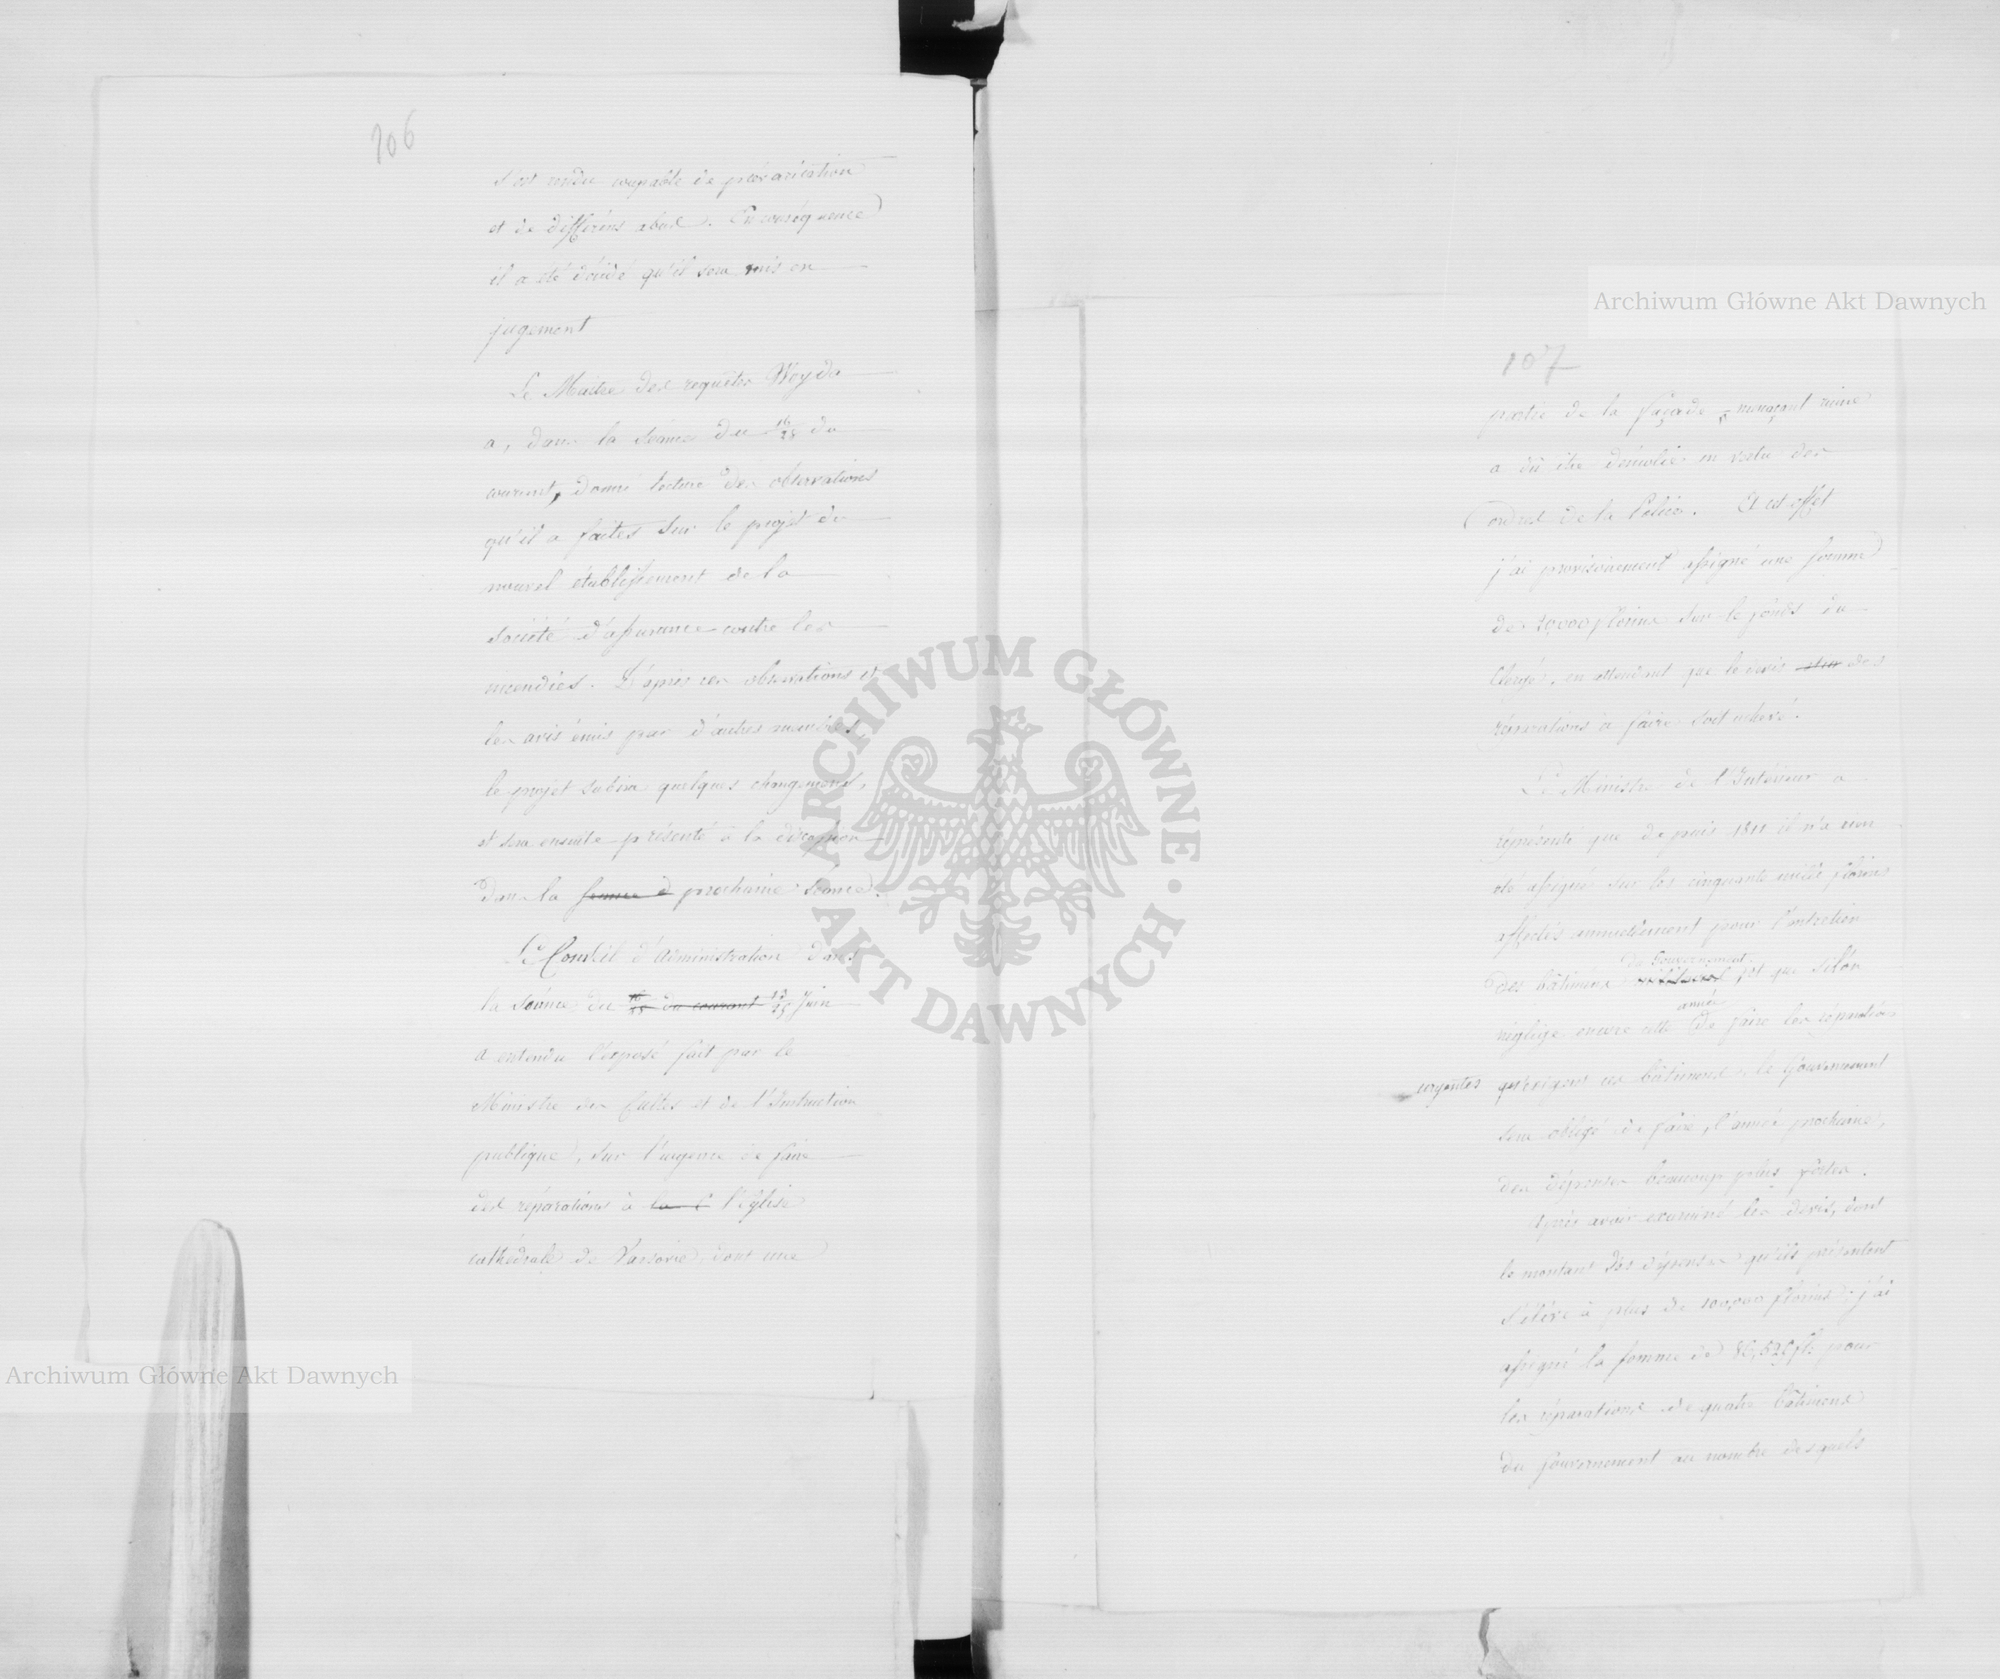 106
s'est rendu coupable de prévarication
et de différens abus. En conséquence
il a été décidé qu'il sera mis en
jugement
Le Maître des requêtes Woyda
a, dans la séance du 16/28 du
courant, donné lecture des observations
qu'il a faites sur le projet du
nouvel établissement de la
société d'assurance contre les
incendies. D'après ces observations et
les avis émis par d'autres membres,
le projet subira quelques changemens,
et sera ensuite présenté à la discussion
dans la prochaine séance.
Le Conseil d'administration dans
la séance du 16/28 du courant 13/25 Juin
a entendu l'exposé fait par le
Ministre des Cultes et de l'Instruction
publique, sur l'urgence de faire
des réparations à la C l'Eglise
cathédrale de Varsovie, dont une
107
partie de la façade menaçant ruine
a dû être démolie en vertu des
ordres de la Police. A cet effet
j'ai provisoirement assigné une somme
de 20,000 florins sur le fonds du
Clergé, en attendant que le devis des
réparations à faire soit achevé.
Le Ministre de l'Intérieur a
représenté que depuis 1811 il n'a rien
été assigné sur les cinquante mille florins
affectés annuellement pour l'entretien
du Gouvernement
des bâtimens et que si l'on
année
néglige encore cette de faire les réparations
urgentes qu'exigent ces bâtimens, le Gouvernement
sera obligé de faire, l'année prochaine,
des dépenses beaucoup plus fortes.
Après avoir examiné les devis, dont
le montant des dépenses qu'ils présentent
s'élève à plus de 100,000 florins; j'ai
assigné la somme de fl. pour
les réparations de quatre bâtimens
du Gouvernement au nombre desquels
Archiwum Główne Akt Dawnych
Archiwum Główne Akt Dawnych
ARCHIWUM GŁÓWNE
AKT DAWNYCH